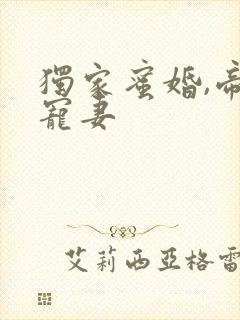 獨家蜜婚,帝
寵妻
艾莉西亞格雷